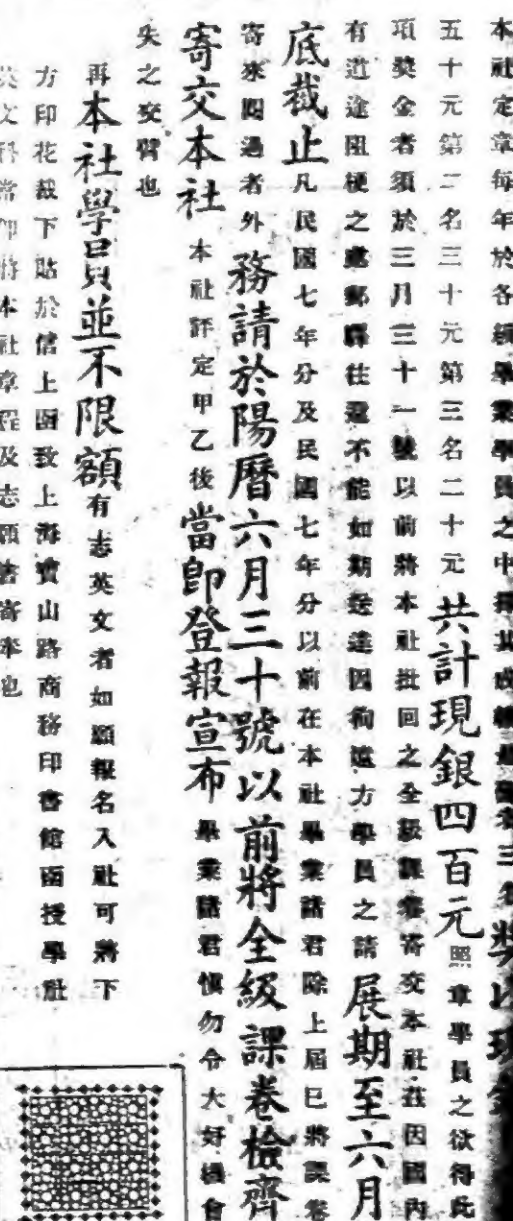 本社定章每年於各級畢業學員之中擇其成績最優者三名獎以現金
五十元第二名三十元第三名二十元共計現銀四百元照章學員之欲得此
項獎金者須於三月三十一號以前將本社批回之全級課卷寄交本社茲因國內
有道途阻梗之處郵驛往還不能如期遞達因徇遠方學員之請展期至六月
底截止凡民國七年分及民國七年分以前在本社畢業諸君除上屆已將課卷
寄來閱過者外務請於陽曆六月三十號以前將全級課卷檢齊
寄交本社本社評定甲乙後當即登報宣布畢業諸君愼勿令大好機會
失之交臂也
再本社學員並不限額有志英文者如願報名入社可將下
方印花裁下貼於信上函致上海寶山路商務印書館函授學社
英文科當即將本社章程及志願書寄奉也